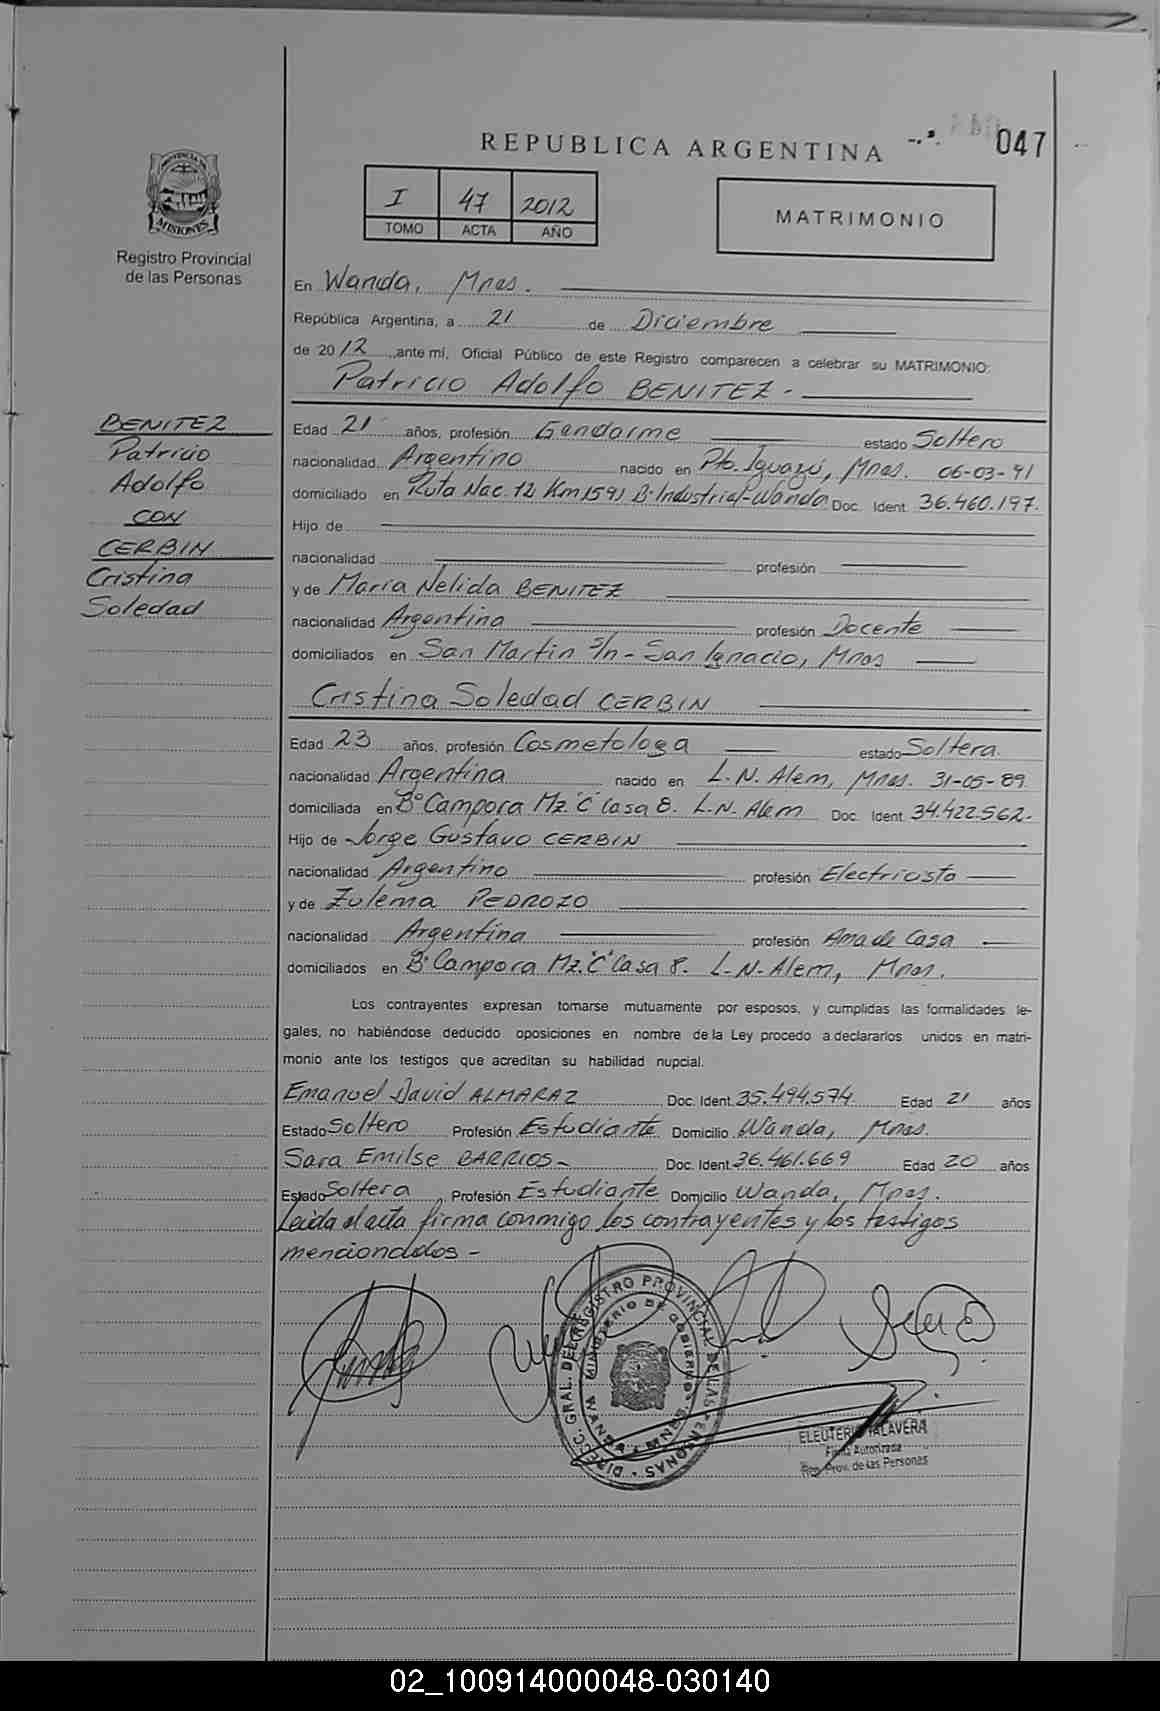 REPUBLICA ARGENTINA
047
I 47 2012
TOMO ACTA AÑO
MATRIMONIO
PROVINCIA DE MISIONES
Registro Provincial
de las Personas
En Wanda, Mnes.
República Argentina, a 21 de Diciembre
de 2012, ante mí, Oficial Público de este Registro comparecen a celebrar su MATRIMONIO:
Patricio Adolfo BENITEZ -
BENITEZ
Patricio
Adolfo
CON
CERBIN
Cristina
Soledad
Edad 21 años, profesión Gendarme estado Soltero
nacionalidad Argentino nacido en Pto. Iguazú, Mnes. 06-03-91
domiciliado en Ruta Nac. 12 Km 1591 Bº Industrial-Wanda Doc. Ident. 36.460.197.
Hijo de
nacionalidad profesión
y de María Nelida BENITEZ
nacionalidad Argentina profesión Docente
domiciliados en San Martin S/n - San Ignacio, Mnes
Cristina Soledad CERBIN
Edad 23 años, profesión Cosmetologa estado Soltera.
nacionalidad Argentina nacido en L.N. Alem, Mnes. 31-05-89
domiciliada en Bº Campora Mz. "C" Casa 8. L.N. Alem Doc. Ident. 34.422.562.
Hijo de Jorge Gustavo CERBIN
nacionalidad Argentino profesión Electricista
y de Zulema PEDROZO
nacionalidad Argentina profesión Ama de Casa
domiciliados en Bº Campora Mz. "C" Casa 8. L-N-Alem, Mnes.
Los contrayentes expresan tomarse mutuamente por esposos, y cumplidas las formalidades le-
gales, no habiéndose deducido oposiciones en nombre de la Ley procedo a declararlos unidos en matri-
monio ante los testigos que acreditan su habilidad nupcial.
Emanuel David ALMARAZ Doc. Ident. 35.494.574 Edad 21 años
Estado Soltero Profesión Estudiante Domicilio Wanda, Mnes.
Sara Emilse BARRIOS - Doc. Ident. 36.461.669 Edad 20 años
Estado Soltera Profesión Estudiante Domicilio Wanda, Mnes.
Leida el acta firma conmigo los contrayentes y los testigos
mencionados -
DIREC. GRAL. DEL REGISTRO PROVINCIAL DE LAS PERSONAS
MINISTERIO DE GOBIERNO
WANDA
ELEUTERIO TALAVERA
Firma Autorizada
Reg. Prov. de las Personas
02_100914000048-030140